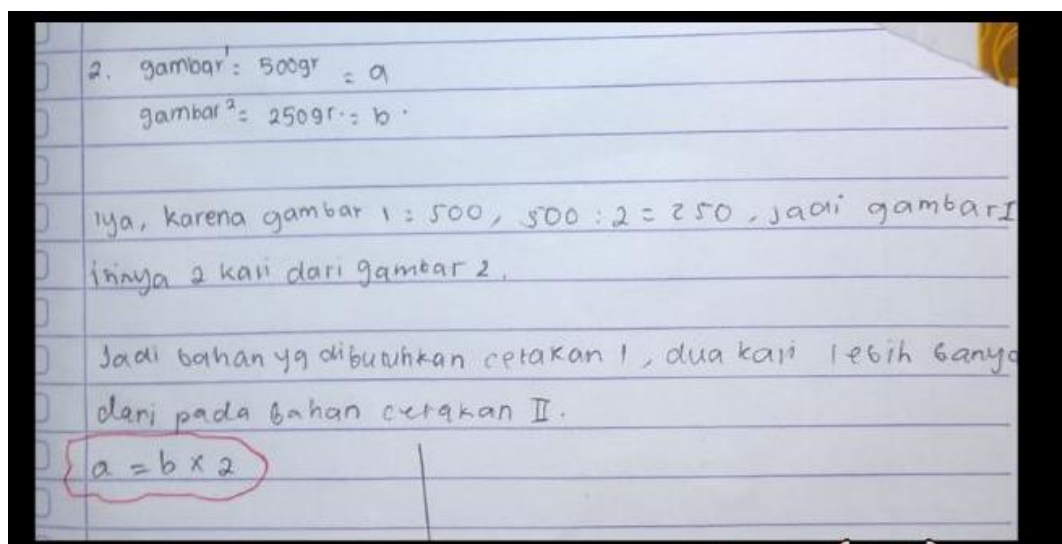 2. gambar 1 = 500gr = a
gambar 2 = 250gr. = b.
iya, karena gambar 1 = 500, 500 : 2 = 250, jadi gambar I
isinya 2 kali dari gambar 2.
Jadi bahan yg dibutuhkan cetakan 1, dua kali lebih banya
dari pada bahan cetakan II.
a = b x 2